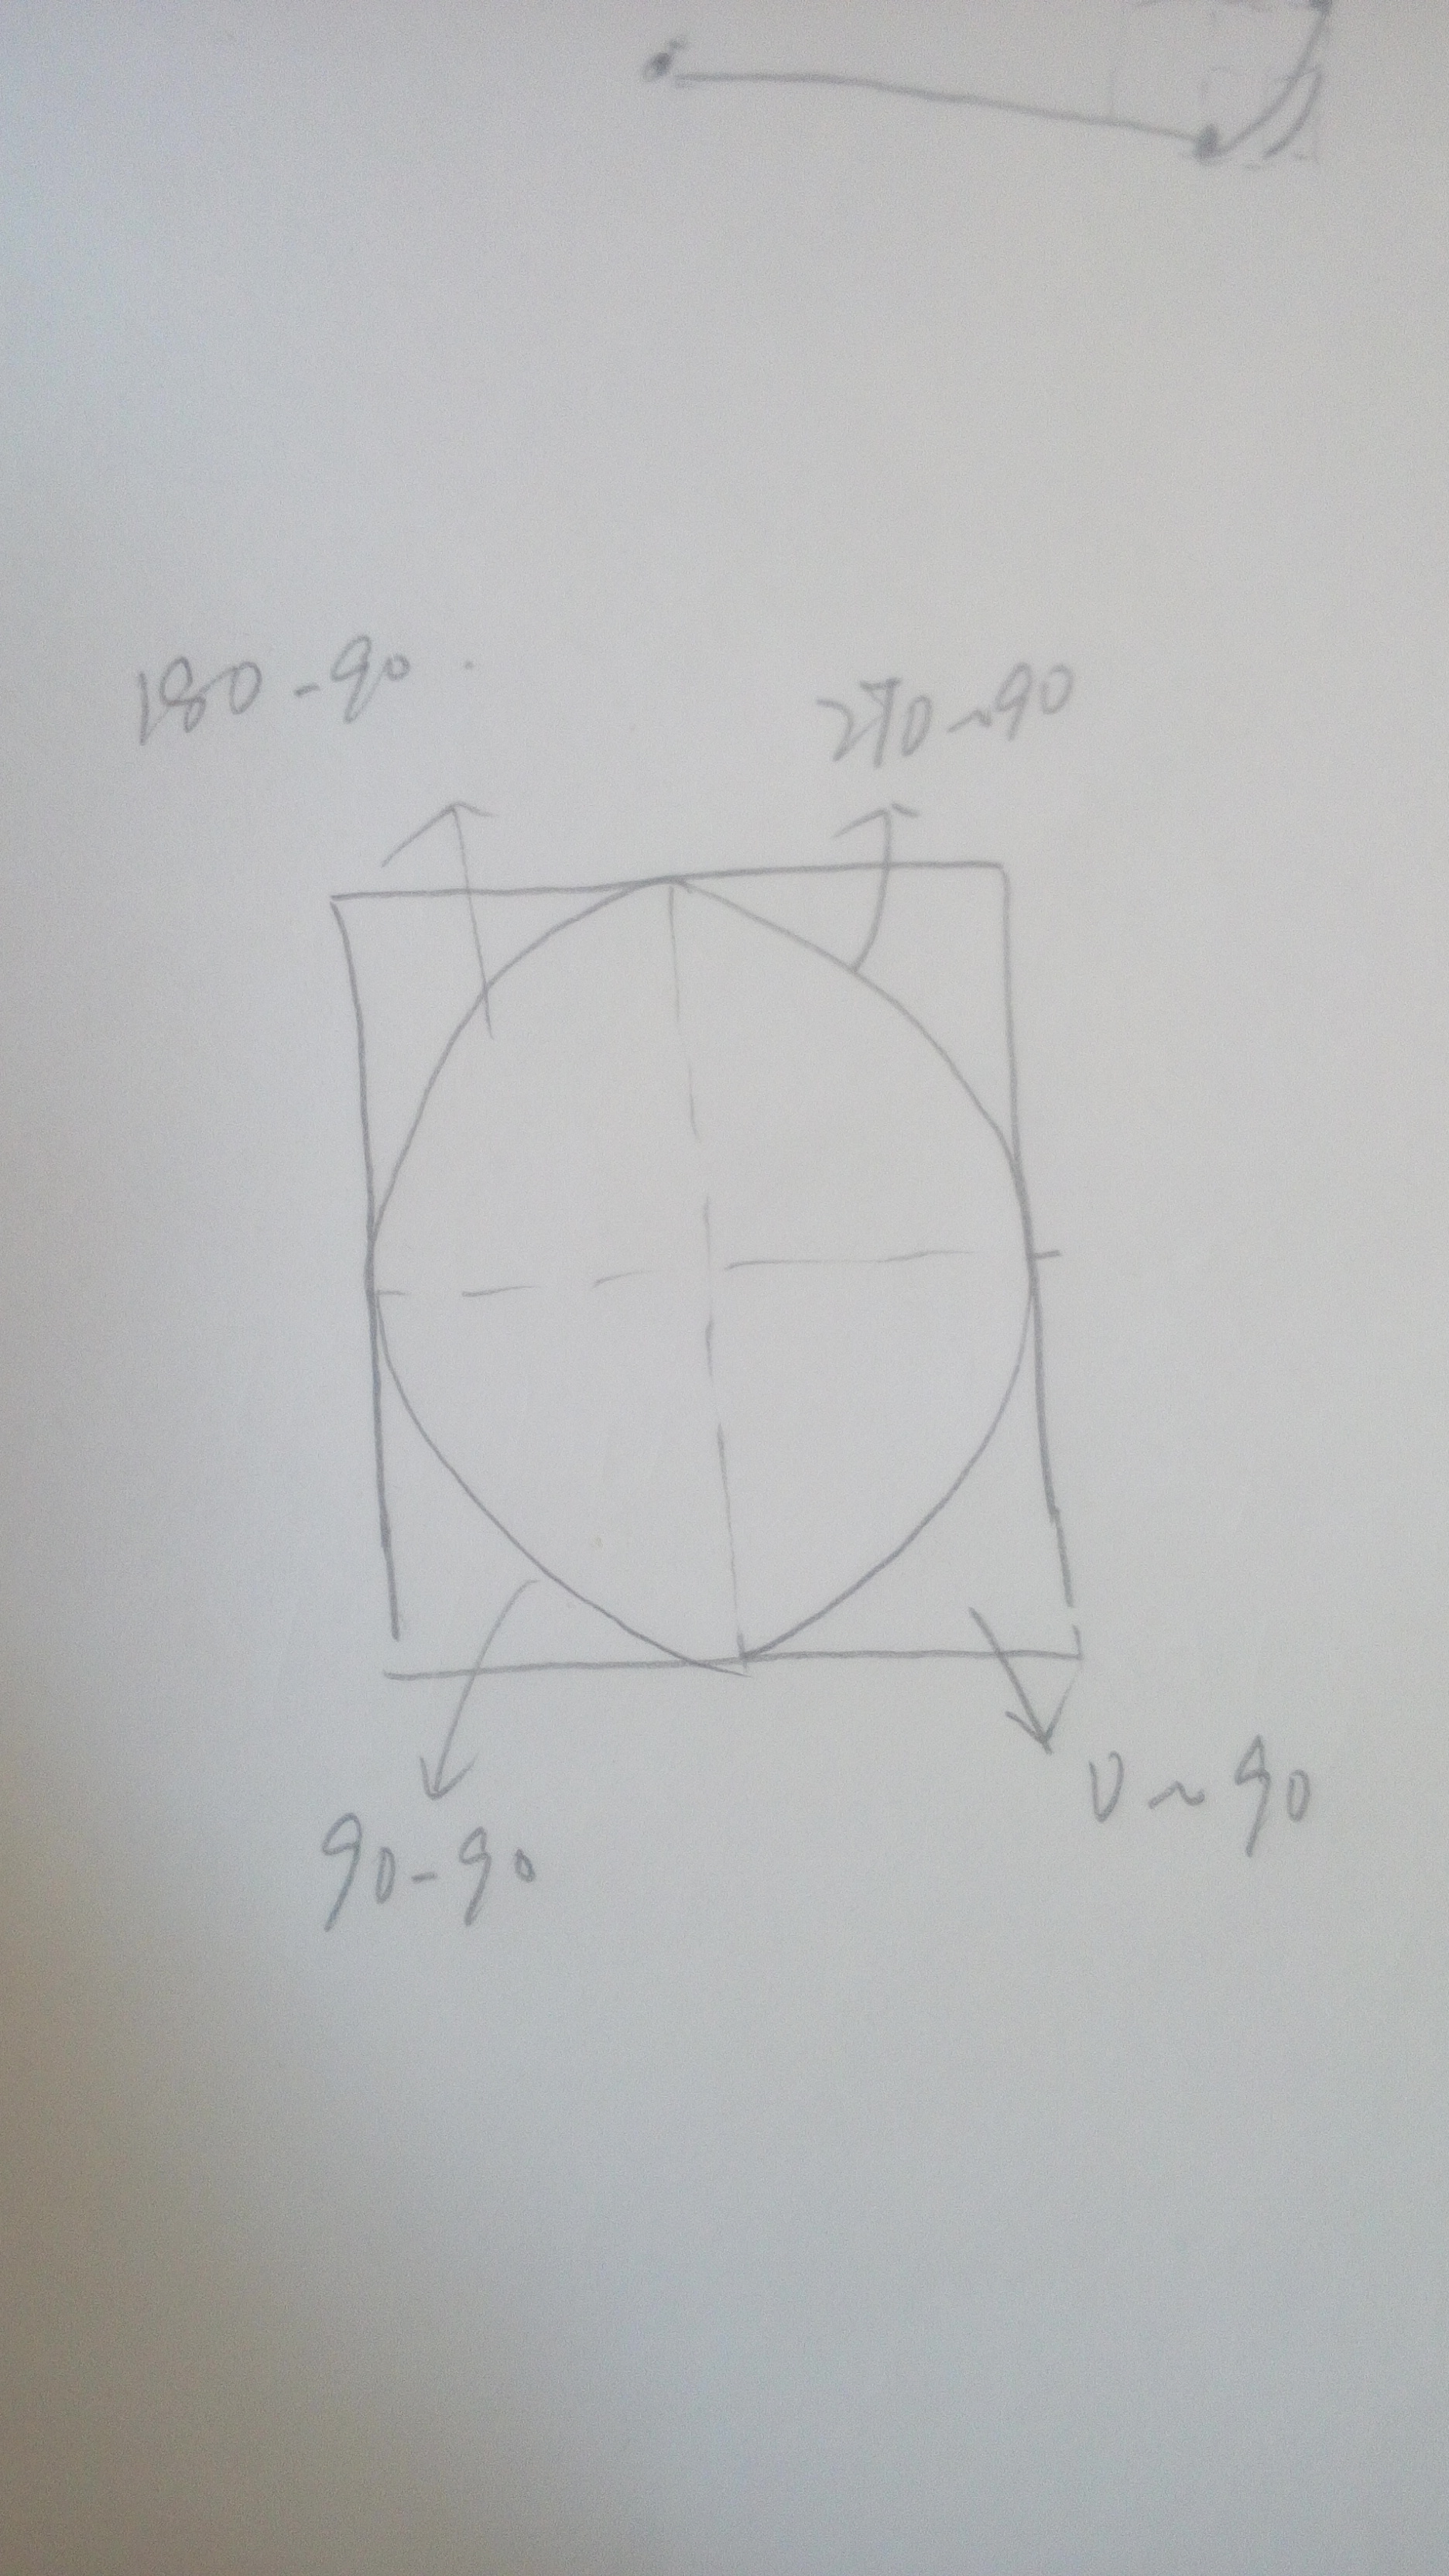 180-90
270~90
90-90
0~90